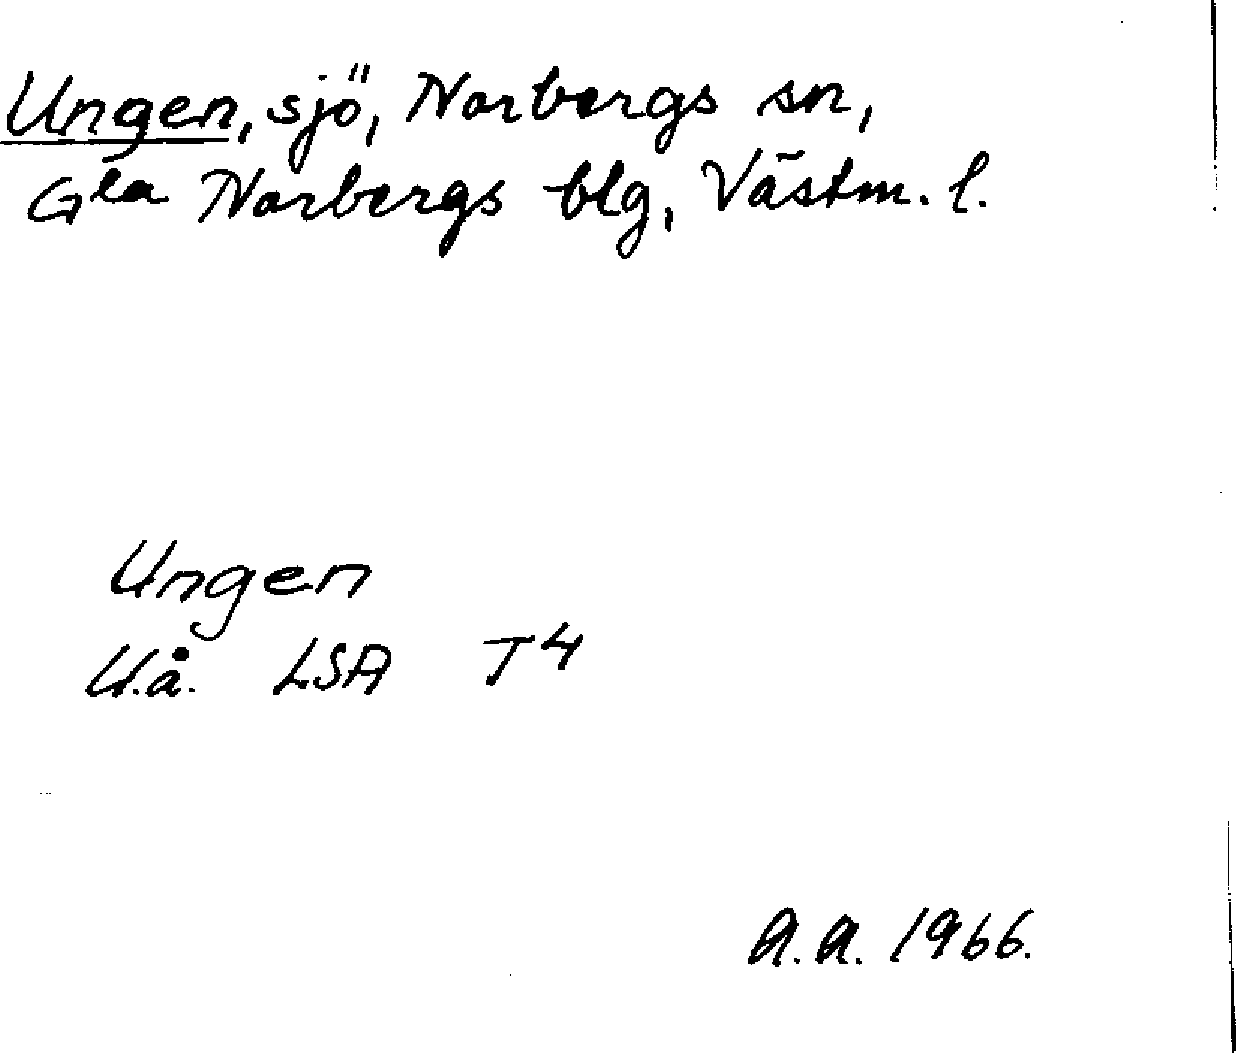 Ungen, sjö, Norbergs sn,
Gla Norbergs blg, Västm. l.
Ungen
U.å. LSA T4
A.A. 1966.